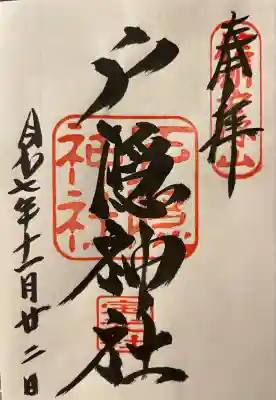 奉拝
戸隠神社
戸隠神社
令和七年十一月廿二日